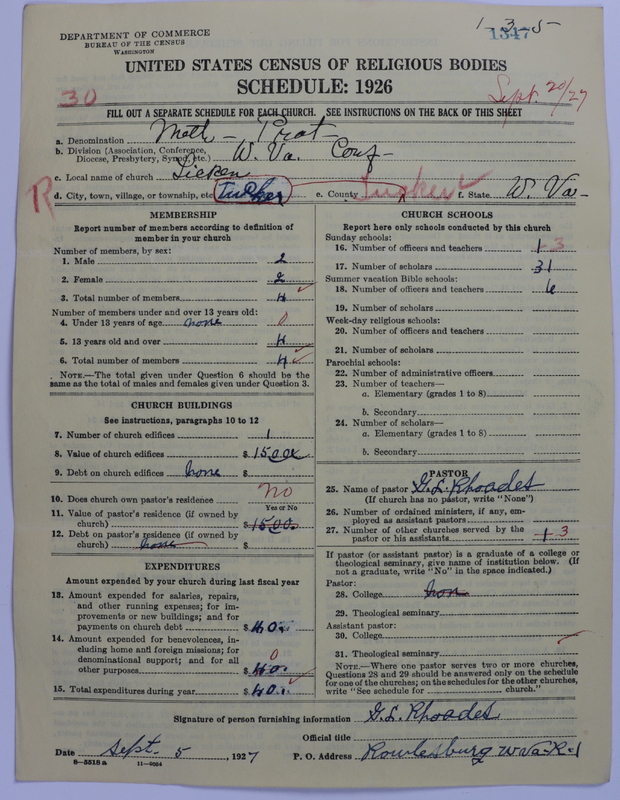 DEPARTMENT OF COMMERCE
BUREAU OF THE CENSUS
WASHINGTON
1 3 5
1347
UNITED STATES CENSUS OF RELIGIOUS BODIES
SCHEDULE: 1926
30
Sept. 20/27
FILL OUT A SEPARATE SCHEDULE FOR EACH CHURCH. SEE INSTRUCTIONS ON THE BACK OF THIS SHEET
a. Denomination Meth - Prot -
b. Division (Association, Conference,
Diocese, Presbytery, Synod, etc.) W. Va. Conf -
c. Local name of church
R
d. City, town, village, or township, etc. Tucker e. County Tucker f. State W. Va -
MEMBERSHIP
Report number of members according to definition of
member in your church
Number of members, by sex:
1. Male 2
2. Female 2
3. Total number of members 4
Number of members under and over 13 years old:
4. Under 13 years of age none 0
5. 13 years old and over 4
6. Total number of members 4
NOTE.—The total given under Question 6 should be the
same as the total of males and females given under Question 3.
CHURCH BUILDINGS
See instructions, paragraphs 10 to 12
7. Number of church edifices 1
8. Value of church edifices $ 1500
9. Debt on church edifices none $
10. Does church own pastor's residence No
Yes or No
11. Value of pastor's residence (if owned by
church) $ 1500
12. Debt on pastor's residence (if owned by
church) none $
EXPENDITURES
Amount expended by your church during last fiscal year
13. Amount expended for salaries, repairs,
and other running expenses; for im-
provements or new buildings; and for
payments on church debt $ 40
14. Amount expended for benevolences, in-
cluding home and foreign missions; for
denominational support; and for all
other purposes $ 40 0
15. Total expenditures during year $ 40
CHURCH SCHOOLS
Report here only schools conducted by this church
Sunday schools:
16. Number of officers and teachers 1 3
17. Number of scholars 31
Summer vacation Bible schools:
18. Number of officers and teachers 6
19. Number of scholars
Week-day religious schools:
20. Number of officers and teachers
21. Number of scholars
Parochial schools:
22. Number of administrative officers
23. Number of teachers—
a. Elementary (grades 1 to 8)
b. Secondary
24. Number of scholars—
a. Elementary (grades 1 to 8)
b. Secondary
PASTOR
25. Name of pastor G. L. Rhoades
(If church has no pastor, write "None")
26. Number of ordained ministers, if any, em-
ployed as assistant pastors
27. Number of other churches served by the
pastor or his assistants 1 3
If pastor (or assistant pastor) is a graduate of a college or
theological seminary, give name of institution below. (If
not a graduate, write "No" in the space indicated.)
Pastor:
28. College
29. Theological seminary
Assistant pastor:
30. College
31. Theological seminary
NOTE.—Where one pastor serves two or more churches,
Questions 28 and 29 should be answered only on the schedule
for one of the churches; on the schedules for the other churches,
write "See schedule for church."
Signature of person furnishing information G. L. Rhoades
Official title
Date Sept. 5, 1927 P. O. Address Rowlesburg W Va - R-1
8-5518a 11-9024